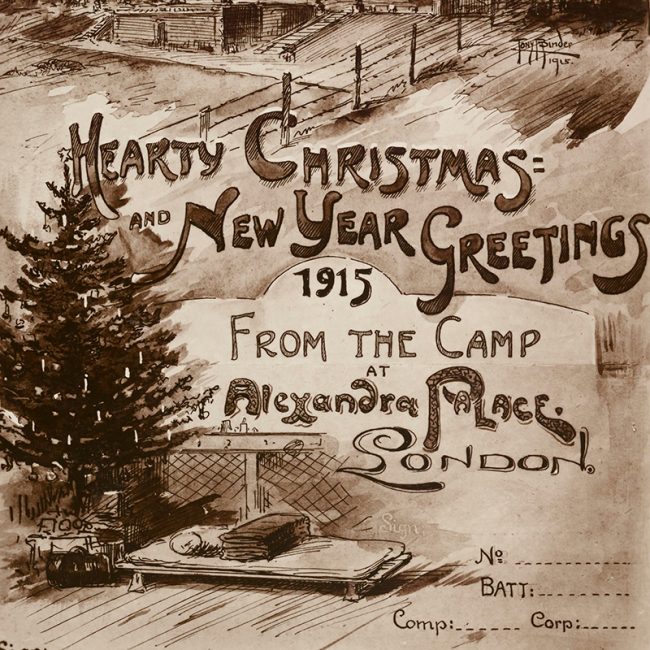 Tony Binder
1915.
HEARTY CHRISTMAS=
AND NEW YEAR GREETINGS
1915
FROM THE CAMP
AT
Alexandra PALACE.
LONDON.
Sign.
No
BATT:
Comp: Corp:
Sign